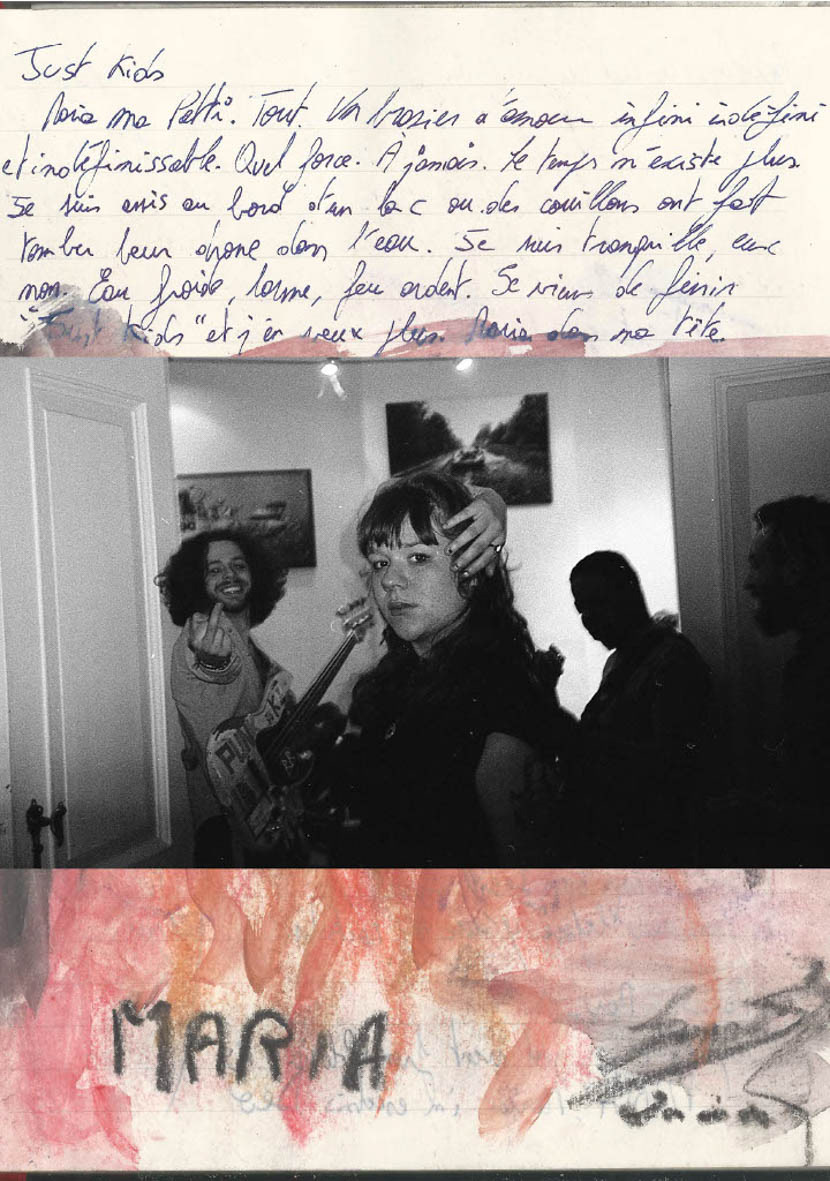 Just Kids
Maria ma Patti. Tout. Un brasier d'amour infini indéfini
et indéfinissable. Quel force. À jamais. Le temps n'existe plus.
Je suis assis au bord d'un lac ou des couillons ont fait
tomber leur drone dans l'eau. Je suis tranquille, eux
non. Eau froide, larme, feu ardent. Je viens de finir
"Just Kids" et j'en veux plus. Maria dans ma tête.
PUN
MARIA